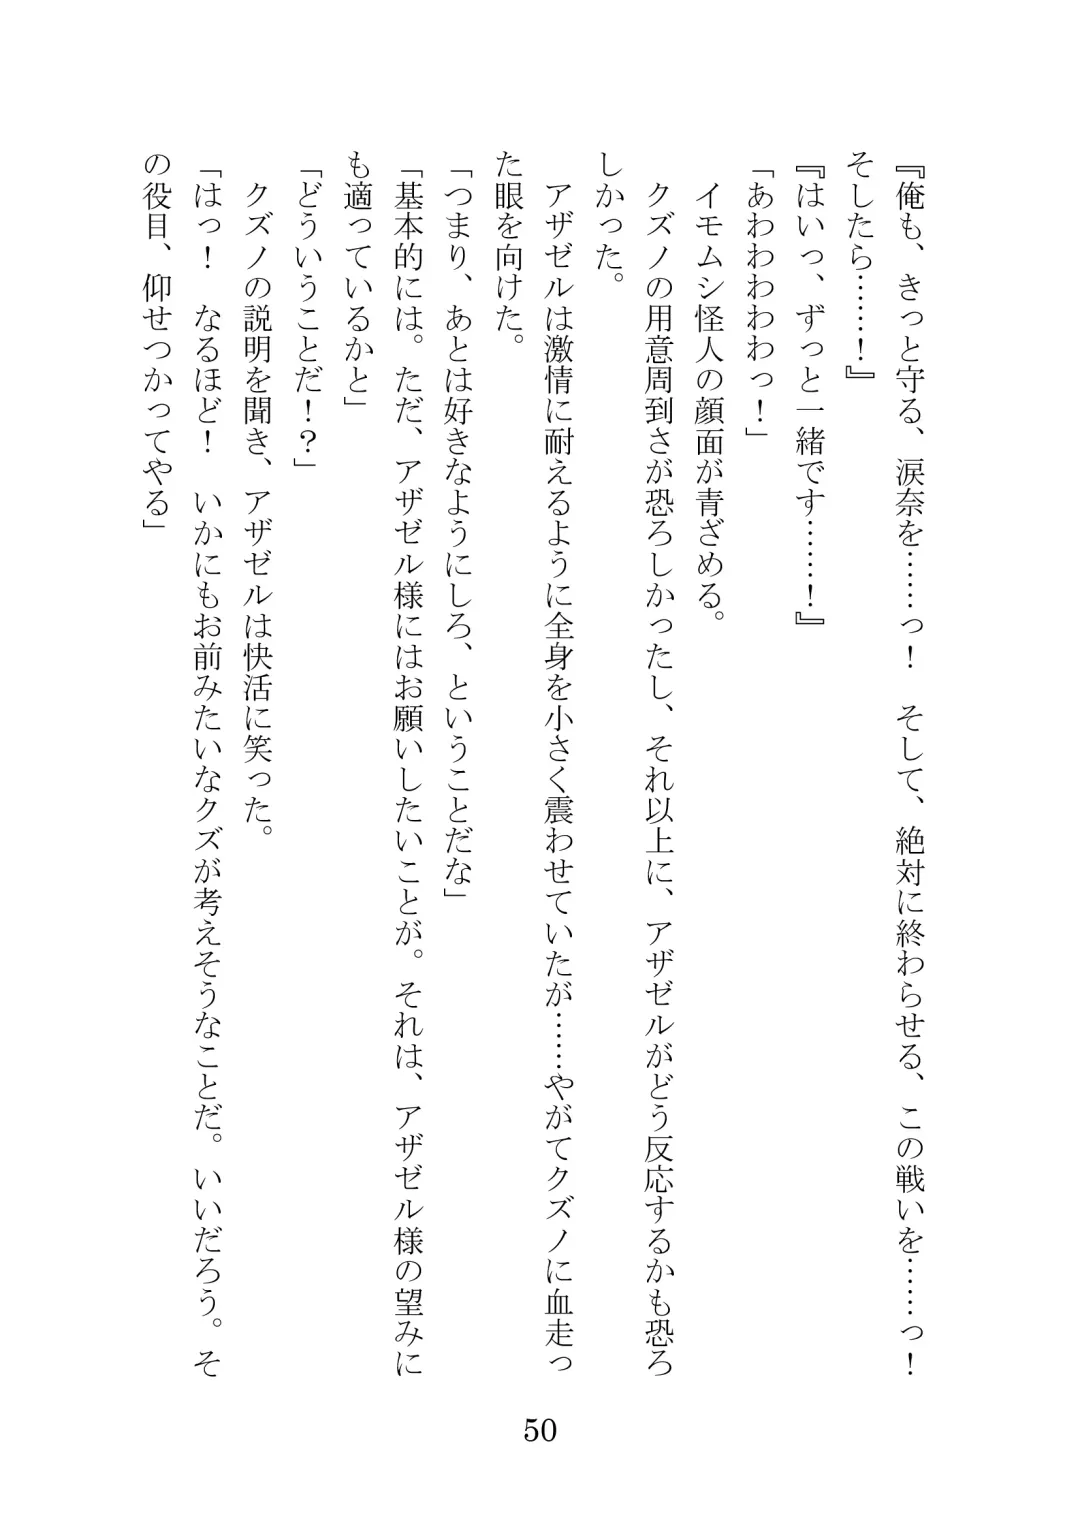 『俺も、きっと守る、涙奈を……っ！　そして、絶対に終わらせる、この戦いを……っ！
そしたら……！』
『はいっ、ずっと一緒です……！』
「あわわわわわっ！」
　イモムシ怪人の顔面が青ざめる。
　クズノの用意周到さが恐ろしかったし、それ以上に、アザゼルがどう反応するかも恐ろ
しかった。
　アザゼルは激情に耐えるように全身を小さく震わせていたが……やがてクズノに血走っ
た眼を向けた。
「つまり、あとは好きなようにしろ、ということだな」
「基本的には。ただ、アザゼル様にはお願いしたいことが。それは、アザゼル様の望みに
も適っているかと」
「どういうことだ！？」
　クズノの説明を聞き、アザゼルは快活に笑った。
「はっ！　なるほど！　いかにもお前みたいなクズが考えそうなことだ。いいだろう。そ
の役目、仰せつかってやる」
50